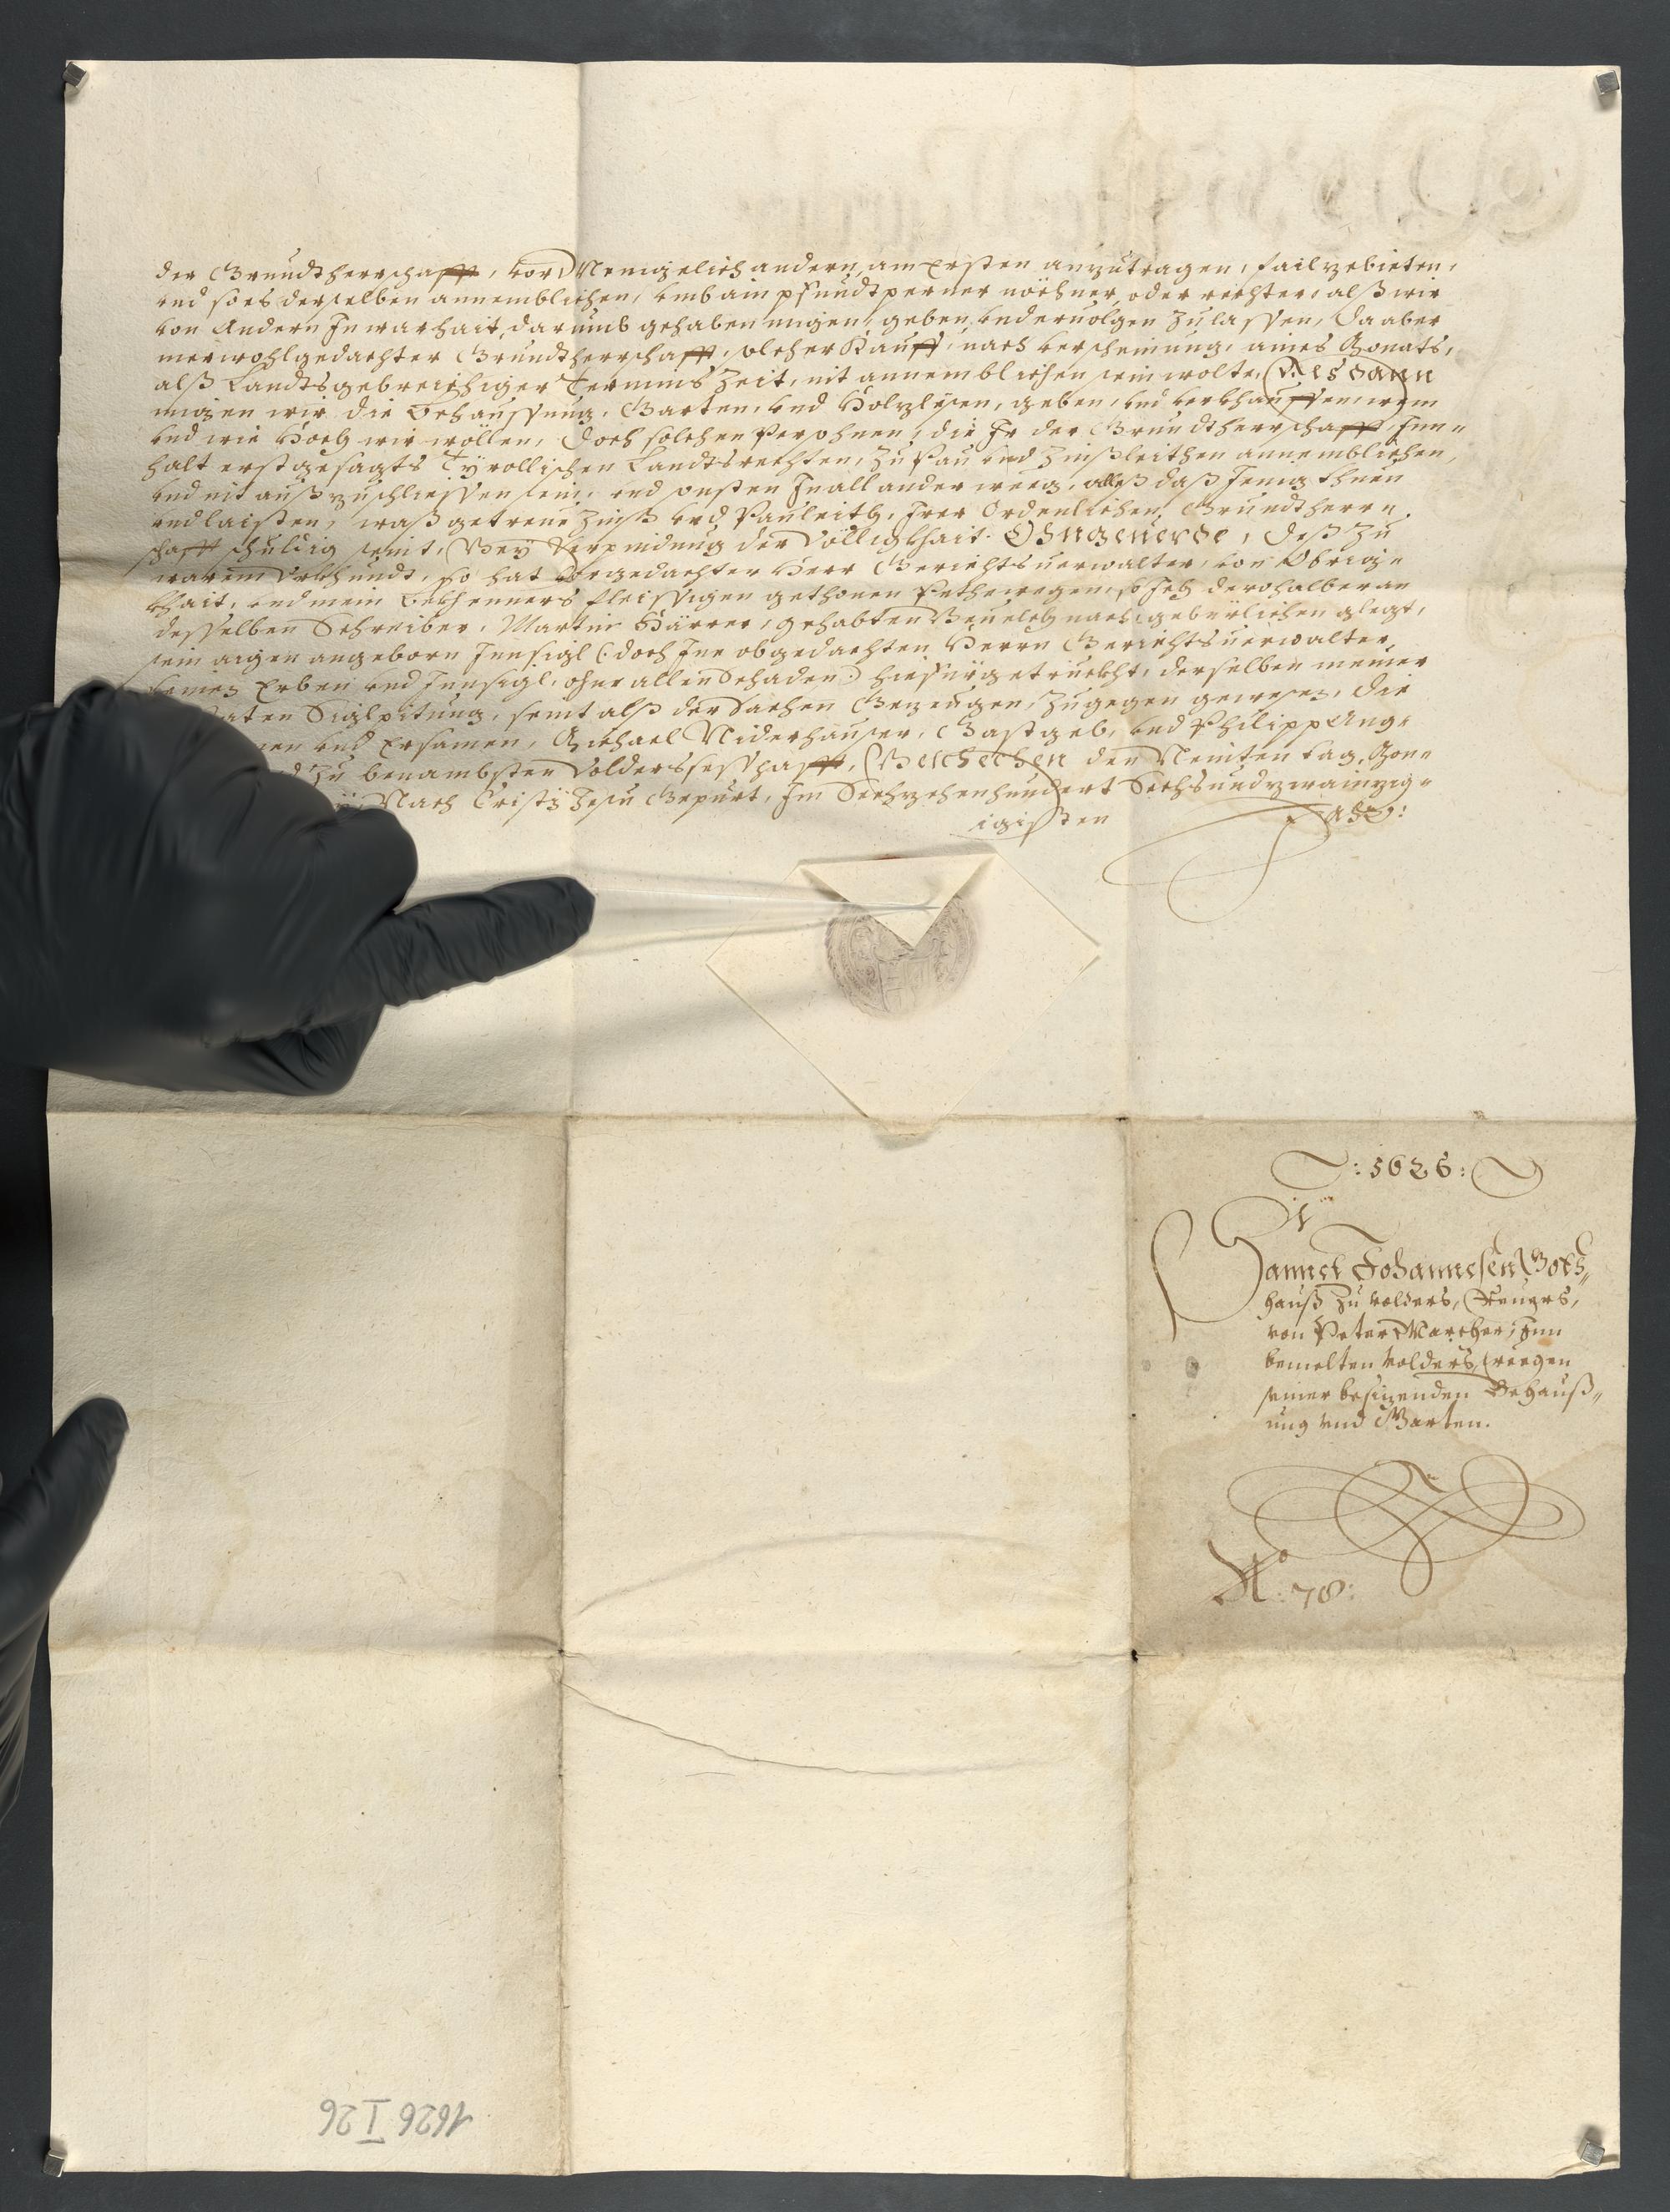 der Grundtherrschafft, vor Menigelich andern, am Ersten anzutragen, failzebieten,
vnd so es derselben annemblichen, vmb ain pfundt perner nöchner, oder rechter, alß wir
von Andern In warhait, darumb gehaben migen, geben, vnd eruolgen Zulassen, Da aber
merwohlgedachter Grundtherrschafft, solcher Kauff, nach verscheinung, aines Monats,
alß Landtsgebreichiger Termins Zeit, nit annemblichen sein wolte, Alsdann
migen wir die Behaussung, Garten, vnd Holzlesen, geben, vnd verkhauffen, wem
vnd wie Hoch wir wöllen, Doch solchen Persohnen, die Ir der Grundtherrschafft, Inn-
halt erstgesagts Tyrollischen Landtsrechten, Zu Pau vnd Zinßleithen annemblichen,
vnd nit außzuschliessen sein, vnd sonsten In all ander weeg, alleß daß Jenig thuen
vnd laisten, waß getreue Zinß vnd Pauleith, Irer Ordenlichen Grundtherr-
schafft schuldig seint, Bey Verpindung der Völligkhait. Ohngeuerde, Deß Zu
warem Vrkhundt, so hat Vorgedachter Herr Gerichtsuerwalter, von Obrig-
khait, vnd mein Bekhenners fleissigen gethonen Pethwegen, so Ich derohalben an
desselben Schreiber, Martin Härrer, gehabten Beuelch nach, gebürlichen glegt,
sein aigen angeborn Innsigl (: doch Ime obgedachten Herrn Gerichtsuerwalter,
seinen Erben vnd Innsigl, ohne allen Schaden :) hiefür getruckht, derselben meiner
Siglpitung, seint alß der Sachen Gezeugen, Zugegen gewesen, Die
vnd Ersamen, Michael Niderhauser, Gastgeb, vnd Philipp
Zu benambsten Volders sesshafft, Beschechen den Neinten tag, Mon-
Nach Cristy Jesu Gepurt, Im Sechzehenhundert Sechsundzwainzig-
igisten Jar:
: 1626 :
Sannct Johannesen Gots-
hauß Zu Volders, Reuers,
von Peter Marcher, Inn
bemelten Volders, weegen
seiner besizenden Behauß-
ung vnd Garten.
No: 78:
1626 I 26